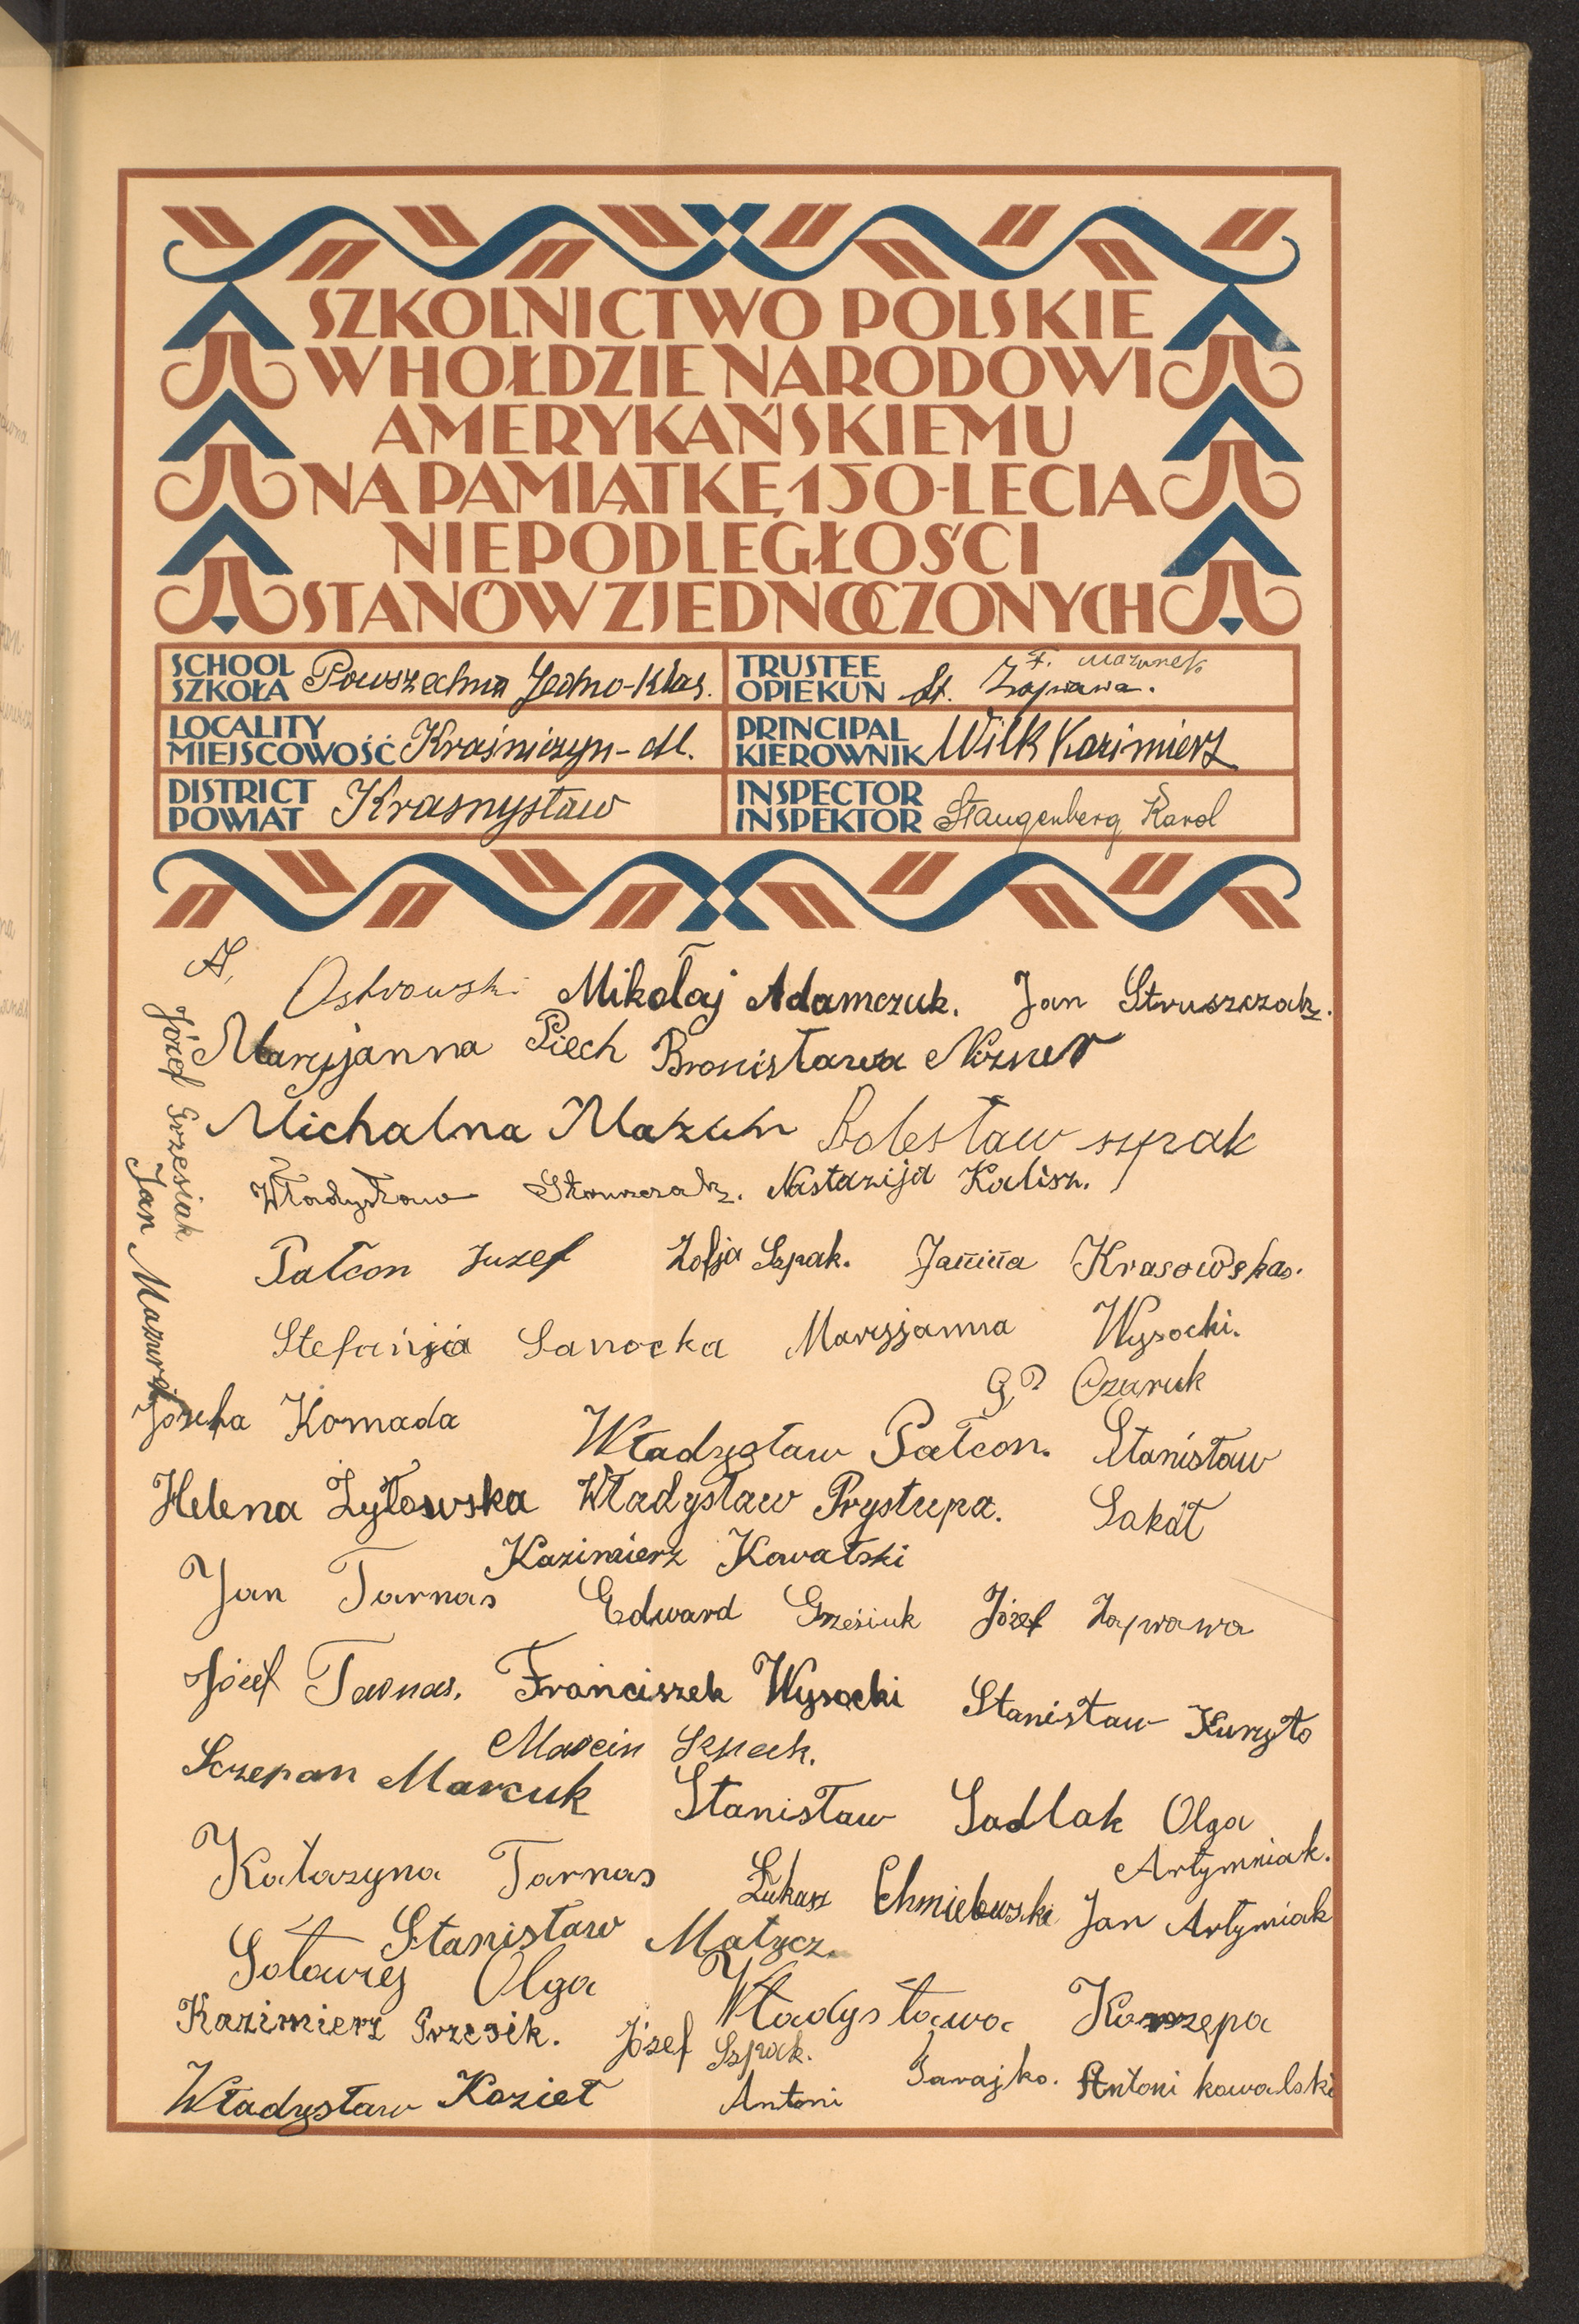 SZKOLNICTWO POLSKIE
W HOŁDZIE NARODOWI
AMERYKAŃSKIEMU
NA PAMIĄTKĘ 150-LECIA
NIEPODLEGŁOŚCI
STANÓW ZJEDNOCZONYCH
SCHOOL
SZKOŁA Powszechna Jedno-klas.
TRUSTEE F. Mazurek
OPIEKUN St. Zaprawa.
LOCALITY
MIEJSCOWOŚĆ Kraśniczyn-M.
PRINCIPAL
KIEROWNIK Wilk Kazimierz
DISTRICT
POWIAT Krasnystaw
INSPECTOR
INSPEKTOR Staugenberg Karol
A. Ostrowski Mikołaj Adamczuk. Jan Struszczak.
Maryjanna Piech Bronisława
Michalna Bolesław szpak
Władysław Nastazija Kalisz.
Pałcon Juzef Zofja Szpak. Janina Krasowska.
Stefanija Sanocka Maryjanna Wysocki.
Czuruk
Józefa Komada Władysław Pałcon. Stanisław
Helena Żyłowska Władysław Prystupa. Sakát
Kazimierz Kowalski
Jan Tarnas Edward Grzesiuk Józef Zaprawa
Józef Tarnas. Franciszek Wysocki Stanisław Kuryło
Marcin Szpak.
Sczepan Marcuk Stanisław Sadlak Olga
Artymniak.
Katazyna Tarnas Łukasz Chmielewski Jan Artymiak
Stanisław Matycz.
Sołowiej Olga Władysława Korzepa
Kazimierz Grzesik. Józef Szpak.
Władysław Kozieł Antoni Sarajko. Antoni kowalski
Józef Grzesiak
Jan Mazurek